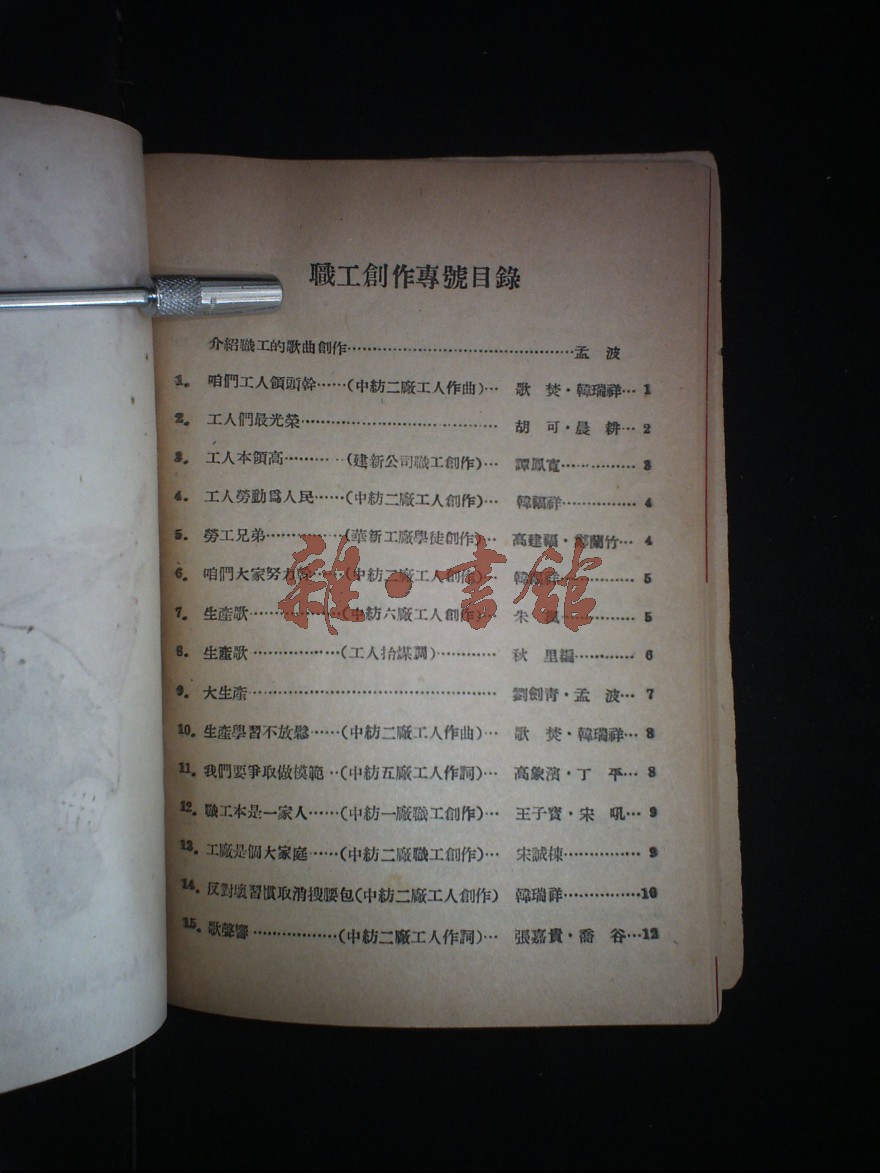 職工創作專號目錄
介紹職工的歌曲創作……………………………………孟　波
1. 咱們工人領頭幹……(中紡二廠工人作曲)… 歌　焚・韓瑞祥… 1
2. 工人們最光榮……………………………… 胡　可・晨　耕… 2
3. 工人本領高…………(建新公司職工創作)… 譚鳳寬…………… 3
4. 工人勞動爲人民……(中紡二廠工人創作)… 韓福祥…………… 4
5. 勞工兄弟……………(華新工廠學徒創作)… 高建福・蘭竹… 4
6. 咱們大家努力幹……(中紡二廠工人創作)… 韓祥…………… 5
7. 生產歌………………(中紡六廠工人創作)… 朱…………… 5
8. 生產歌………………(工人抬煤調)………… 秋　里編………… 6
9. 大生產……………………………………… 劉劍青・孟　波… 7
10. 生產學習不放鬆……(中紡二廠工人作曲)… 歌　焚・韓瑞祥… 8
11. 我們要爭取做模範‥(中紡五廠工人作詞)… 高象濱・丁　平… 8
12. 職工本是一家人……(中紡一廠職工創作)… 王子寶・宋　吼… 9
13. 工廠是個大家庭……(中紡二廠職工創作)… 宋誠棟…………… 9
14. 反對壞習慣取消搜腰包(中紡二廠工人創作) 韓瑞祥……………10
15. 歌聲響………………(中紡二廠工人作詞)… 張嘉貴・喬　谷…12
雜・書館